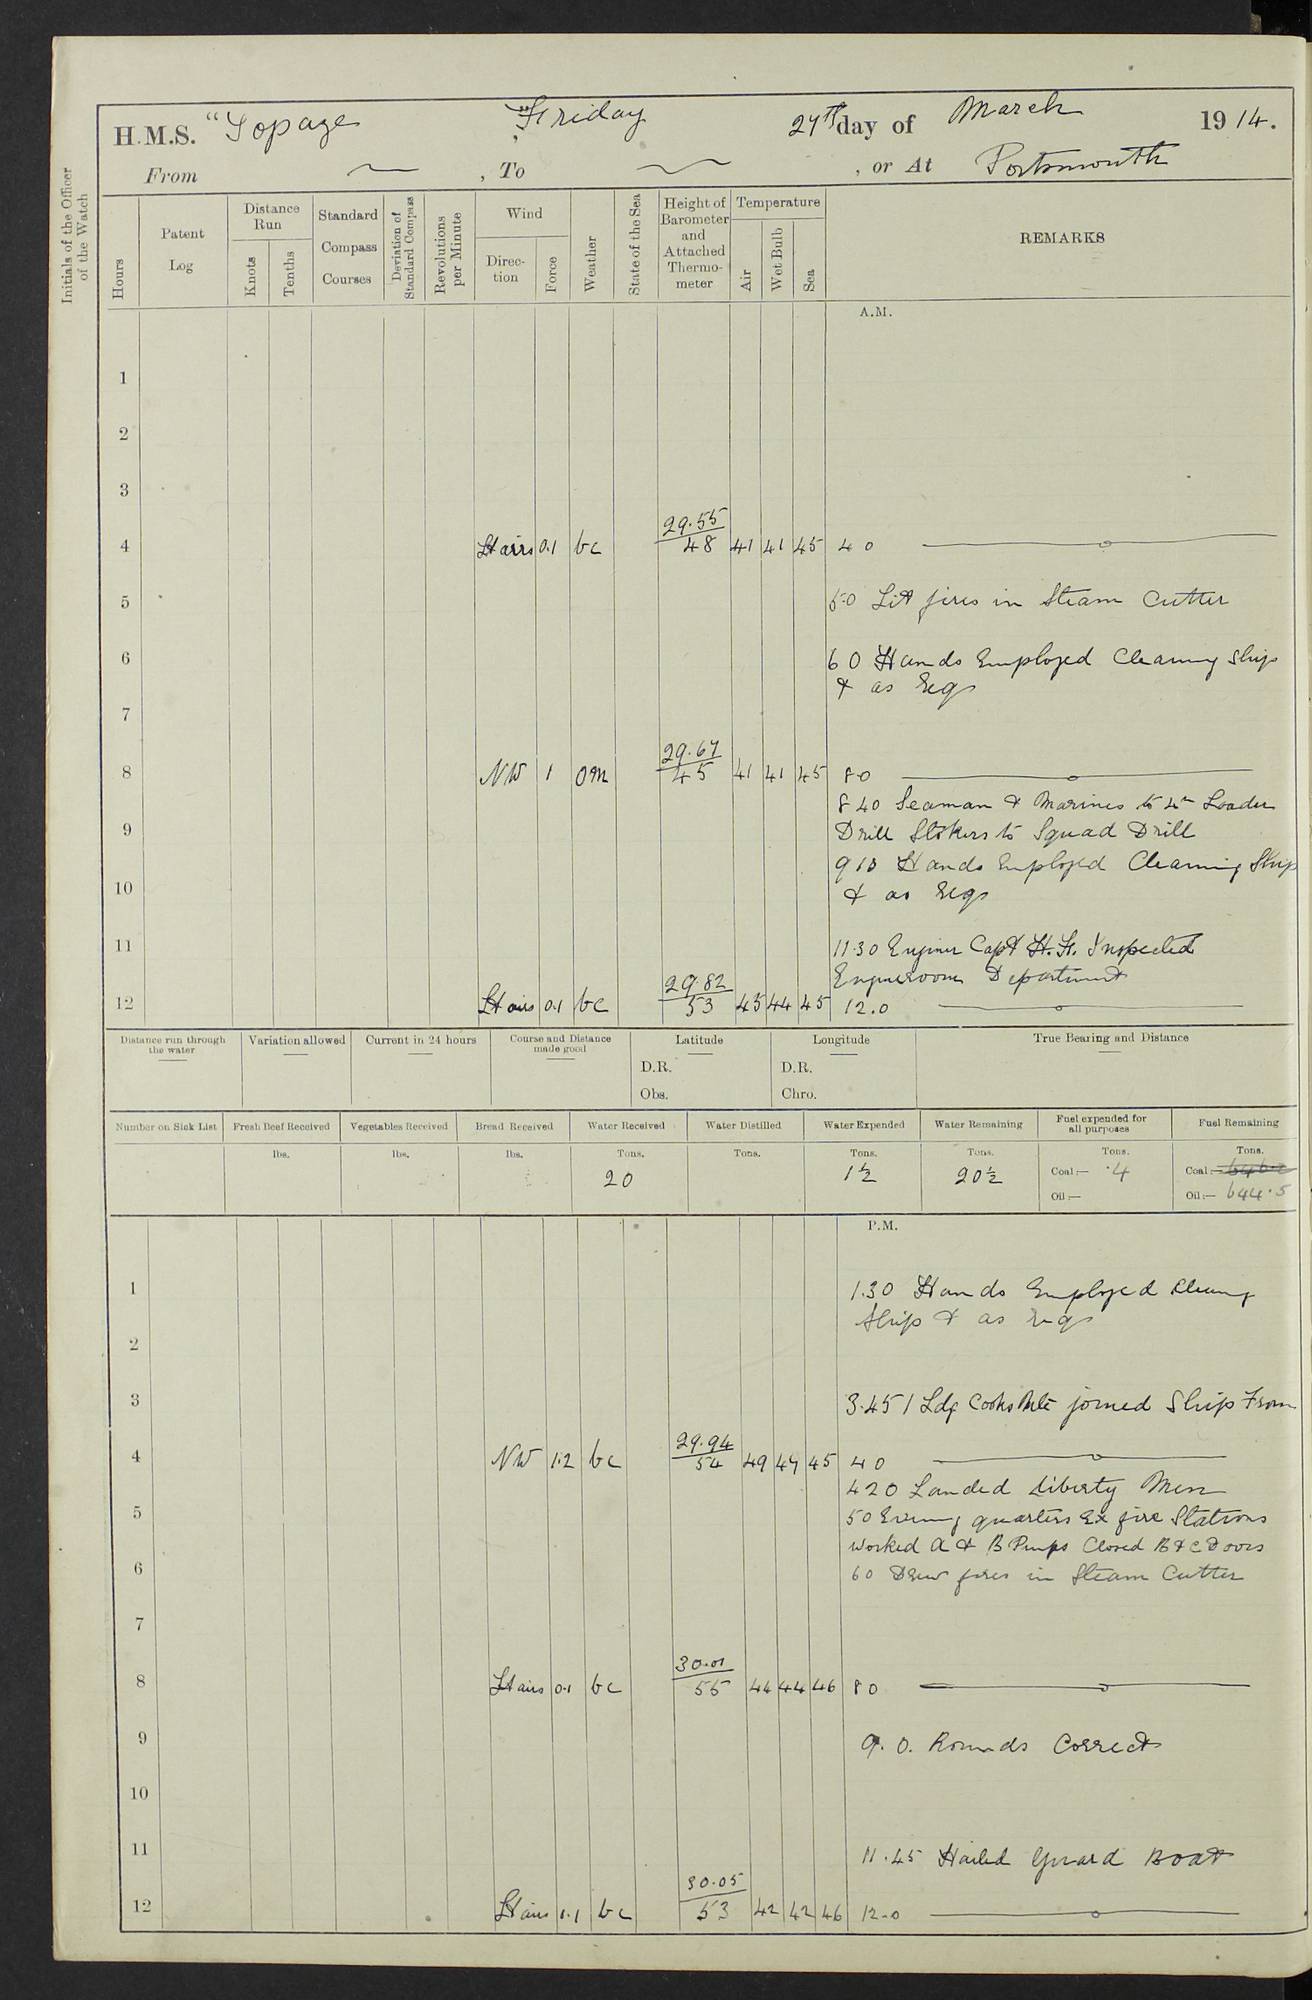 H.M.S. "Topaze", Friday 27th day of March 1914.
From ~ , To ~ , or At Portsmouth
Initials of the Officer of the Watch
Hours
Patent Log
Distance Run
Knots
Tenths
Standard Compass Courses
Deviation of Standard Compass
Revolutions per Minute
Wind
Direction
Force
Weather
State of the Sea
Height of Barometer and Attached Thermometer
Temperature
Air
Wet Bulb
Sea
REMARKS
A.M.
1
2
3
4 Lt airs 0.1 bc 29.55 48 41 41 45 4 0
5 5.0 Lit fires in Steam Cutter
6 6 0 Hands Employed Cleaning Ship
& as reqs
7
8 NW 1 om 29.67 45 41 41 45 8.0
8 40 Seaman & Marines to 4in Loader
9 Drill Stokers to Squad Drill
9 10 Hands Employed Cleaning Ship
10 & as reqs
11 11.30 Engineer Capt H.F. Inspected
Engineroom Department
12 Lt airs 0.1 bc 29.82 53 45 44 45 12.0
Distance run through the water
Variation allowed
Current in 24 hours
Course and Distance made good
Latitude
D.R.
Obs.
Longitude
D.R.
Chro.
True Bearing and Distance
Number on Sick List
Fresh Beef Received
lbs.
Vegetables Received
lbs.
Bread Received
lbs.
Water Received
Tons.
20
Water Distilled
Tons.
Water Expended
Tons.
1½
Water Remaining
Tons.
20½
Fuel expended for all purposes
Tons.
Coal:— .4
Oil:—
Fuel Remaining
Tons.
Coal:—
Oil:— 644.5
P.M.
1 1.30 Hands Employed Cleaning
Ship & as reqs
2
3 3.45 1 Ldg Cooks Mate joined Ship From
4 NW 1.2 bc 29.94 54 49 47 45 4 0
4 20 Landed Liberty Men
5 5 0 Evening quarters Ex fire Stations
worked A & B Pumps Closed B & C Doors
6 6 0 Drew fires in Steam Cutter
7
8 Lt airs 0.1 bc 30.01 55 44 44 46 8 0
9 9.0. Rounds Correct
10
11 11.45 Hailed Guard Boat
12 Lt airs 1.1 bc 30.05 53 42 42 46 12.0